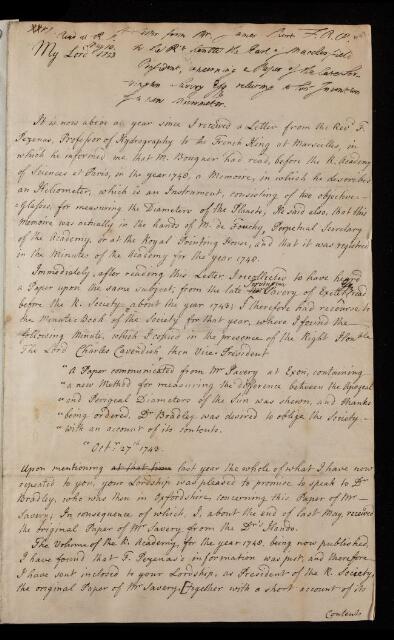 XXVI
Read at R. S. A Letter from Mr. James Short F.R.S. to
My Lord May 10. 1753 to the Rt. Honble the Earl of Macclesfield
President, concerning a Paper of the late Servington
Savery Esq. relating to his Invention
of a new Micrometer.
It is now above a year since I received a Letter from the Revd. F.
Pezenas, Professor of Hydrography to the French King at Marseilles, in
which he informed me that M. Bouguer had read, before the R. Academy
of Sciences at Paris, in the year 1748, a Memoire, in which he describes
an Heliometer, which is an Instrument, consisting of two objective-
Glasses, for measuring the Diameters of the Planets, He said also, that this
Memoire was actually in the hands of M. de Fouchy, Perpetual Secretary
of the Academy, or at the Royal Printing House, and that it was registered
in the Minutes of the Academy for the year 1748.
Immediately, after reading this Letter, I recollected to have heard
a Paper upon the same subject, from the late Servington Savery of Exeter Esq. read
before the R. Society about the year 1743; I therefore had recourse to
the Minute Book of the Society for that year, where I found the
following Minute, which I copied in the presence of the Right Honble
The Lord Charles Cavendish, then Vice-President
"A Paper communicated from Mr Savery at Exon, containing
"a new Method for measuring the difference between the Apogeal
"and Perigeal Diameters of the Sun was shewn, and thanks
"being ordered. Dr. Bradley was desired to oblige the Society
"with an account of its contents.
"Octr. 27th 1743.
Upon mentioning at that time last year the whole of what I have now
repeated to you, your Lordship was pleased to promise to speak to Dr.
Bradley, who was then in Oxfordshire, concerning this Paper of Mr
Savery; In consequence of which, I, about the end of last May, received
the original Paper of Mr Savery from the Dr's Hands.
The Volume of the R. Academy, for the year 1748, being now published,
I have found that F. Pezenas's information was just, and therefore
I have sent inclosed to your Lordship, as President of the R. Society,
the original Paper of Mr Savery, [together with a short account of its
Contents